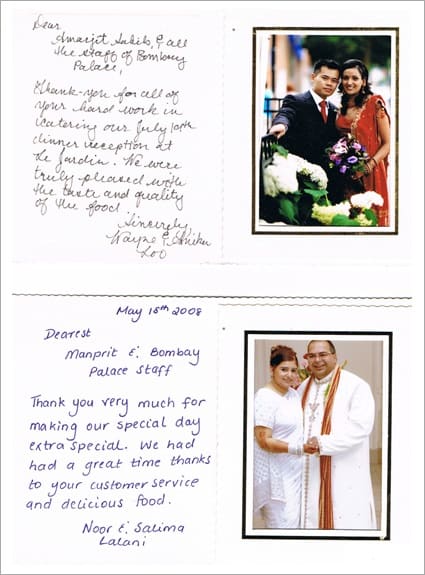 Dear
Amarjit Sahib, & all
the staff of Bombay
Palace,
Thank-you for all of
your hard work in
catering our July 10th
dinner reception at
Le Jardin. We were
truly pleased with
the taste and quality
of the food!
Sincerely,
Wayne &
Loo
May 18th 2008
Dearest
Manprit & Bombay
Palace Staff
Thank you very much for
making our special day
extra special. We had
had a great time thanks
to your customer service
and delicious food.
Noor & Salima
Lalani